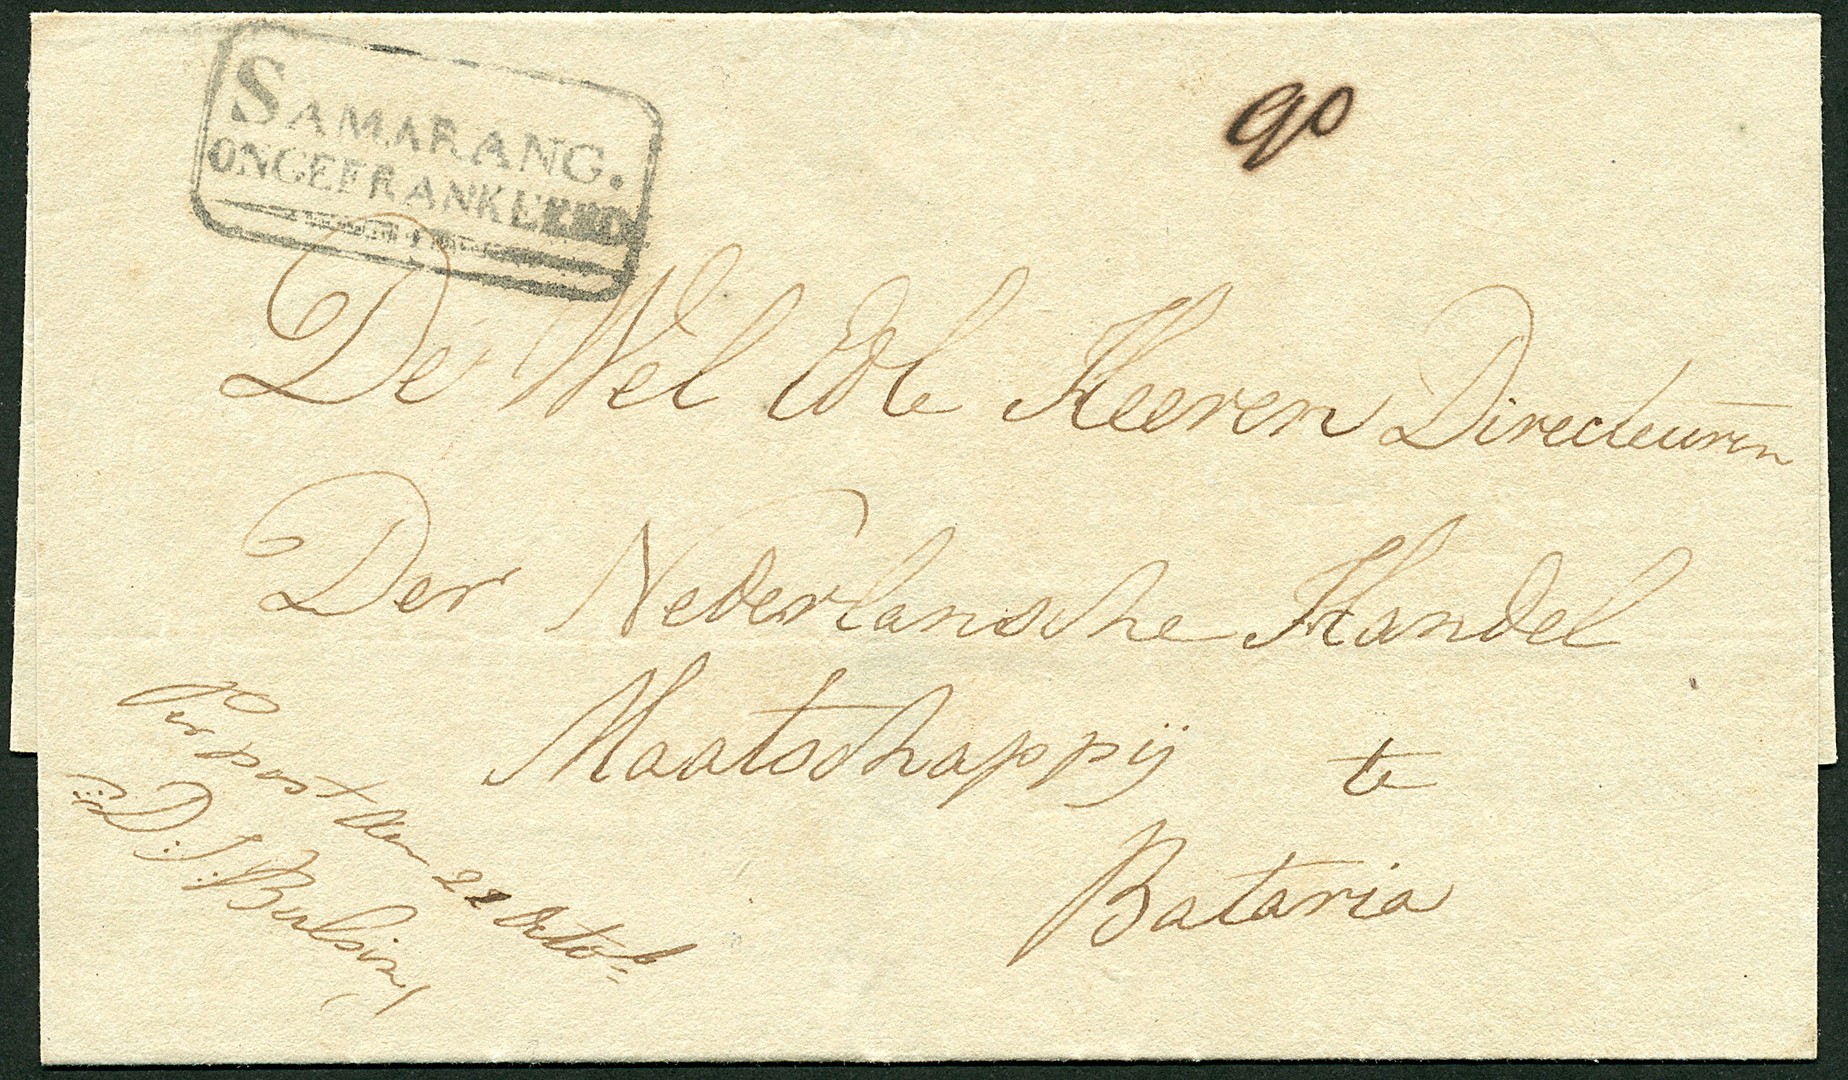 SAMARANG.
ONGEFRANKEERD
90
De Wel Edle Heeren Directeuren
Der Nederlansche Handel
Maatschappij te
Batavia
Per post den 22 Octob:
D: J: